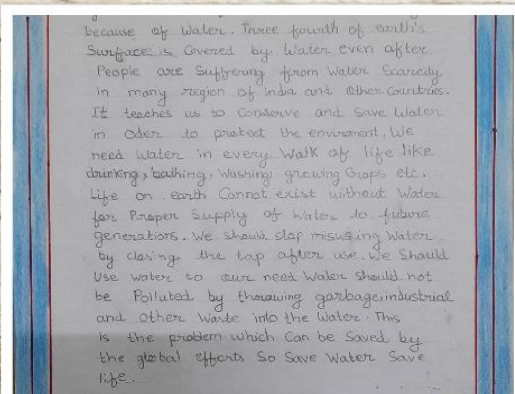 because of Water. Three fourth of earth's
Surface is Covered by Water even after
People are Suffering from Water Scarcity
in many region of india and Other Countries.
It teaches us to Conserve and Save Water
in Oder to protect the enviroment. We
need Water in every Walk of life like
drinking, bathing, Washing growing Crops etc.
Life on earth Cannot exist without Water
for Proper Supply of Water to future
generations. We should stop misusing Water
by closing the tap after use. We Should
Use water to our need Water should not
be Polluted by thorawing garbage, industrial
and other Waste into the Water. This
is the problem which Can be Saved by
the global efforts So Save Water Save
life.